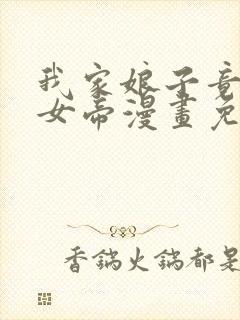 我家娘子竟
女帝漫畫免
香鍋火鍋都是